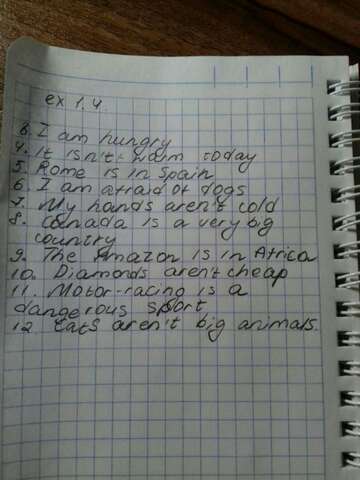 ex 1.4.
3. I am hungry
4. It isn't warm today
5. Rome is in Spain
6. I am afraid of dogs
7. My hands aren't cold
8. Canada is a very big
country
9. The Amazon is in Africa
10. Diamonds aren't cheap
11. Motor-racing is a
dangerous sport
12. Cats aren't big animals.